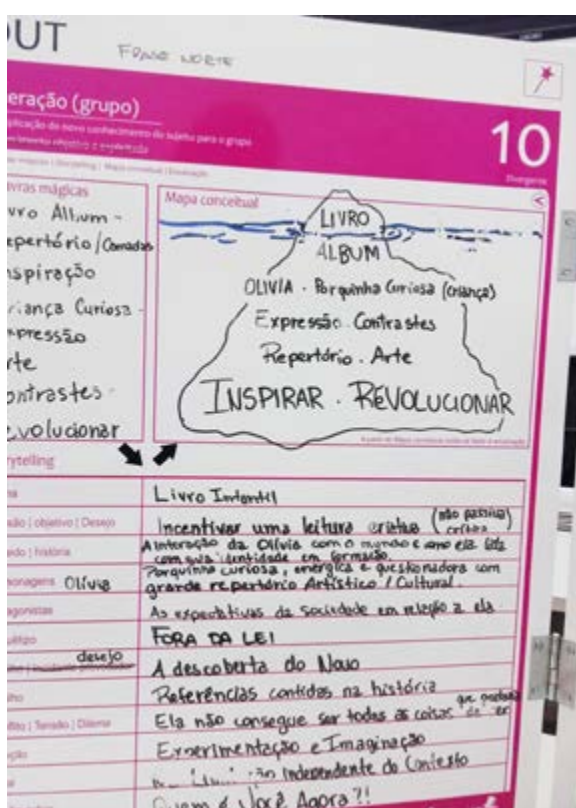 OUT
FRAME NORTE
eração (grupo)
plicação do novo conhecimento do sujeito para o grupo
10
Divergente
vras mágicas
vro Album -
epertório/Camadas
nspiração
riança Curiosa -
xpressão
rte
ontrastes -
evolucionar
Mapa conceitual
LIVRO
ALBUM
OLIVIA - Porquinha Curiosa (criança)
Expressão. Contrastes
Repertório. Arte
INSPIRAR. REVOLUCIONAR
rytelling
Livro Infantil
são | objetivo | Desejo
Incentivar uma leitura criativa (não passiva) crítica
údo | história
A interação da Olívia com o mundo e como ela lida
com sua identidade em formação.
sonagens Olívia
Porquinha curiosa, energica e questionadora com
grande repertório Artístico / Cultural.
agonistas
As expectativas da sociedade em relação a ela
uétipo
FORA DA LEI
desejo
A descoberta do Novo
Referências contidas na história
flito | Tensão | Dilema
Ela não consegue ser todas as coisas que gostaria de ser
Experimentação e Imaginação
Independente do Contexto
Quem é Você Agora?!